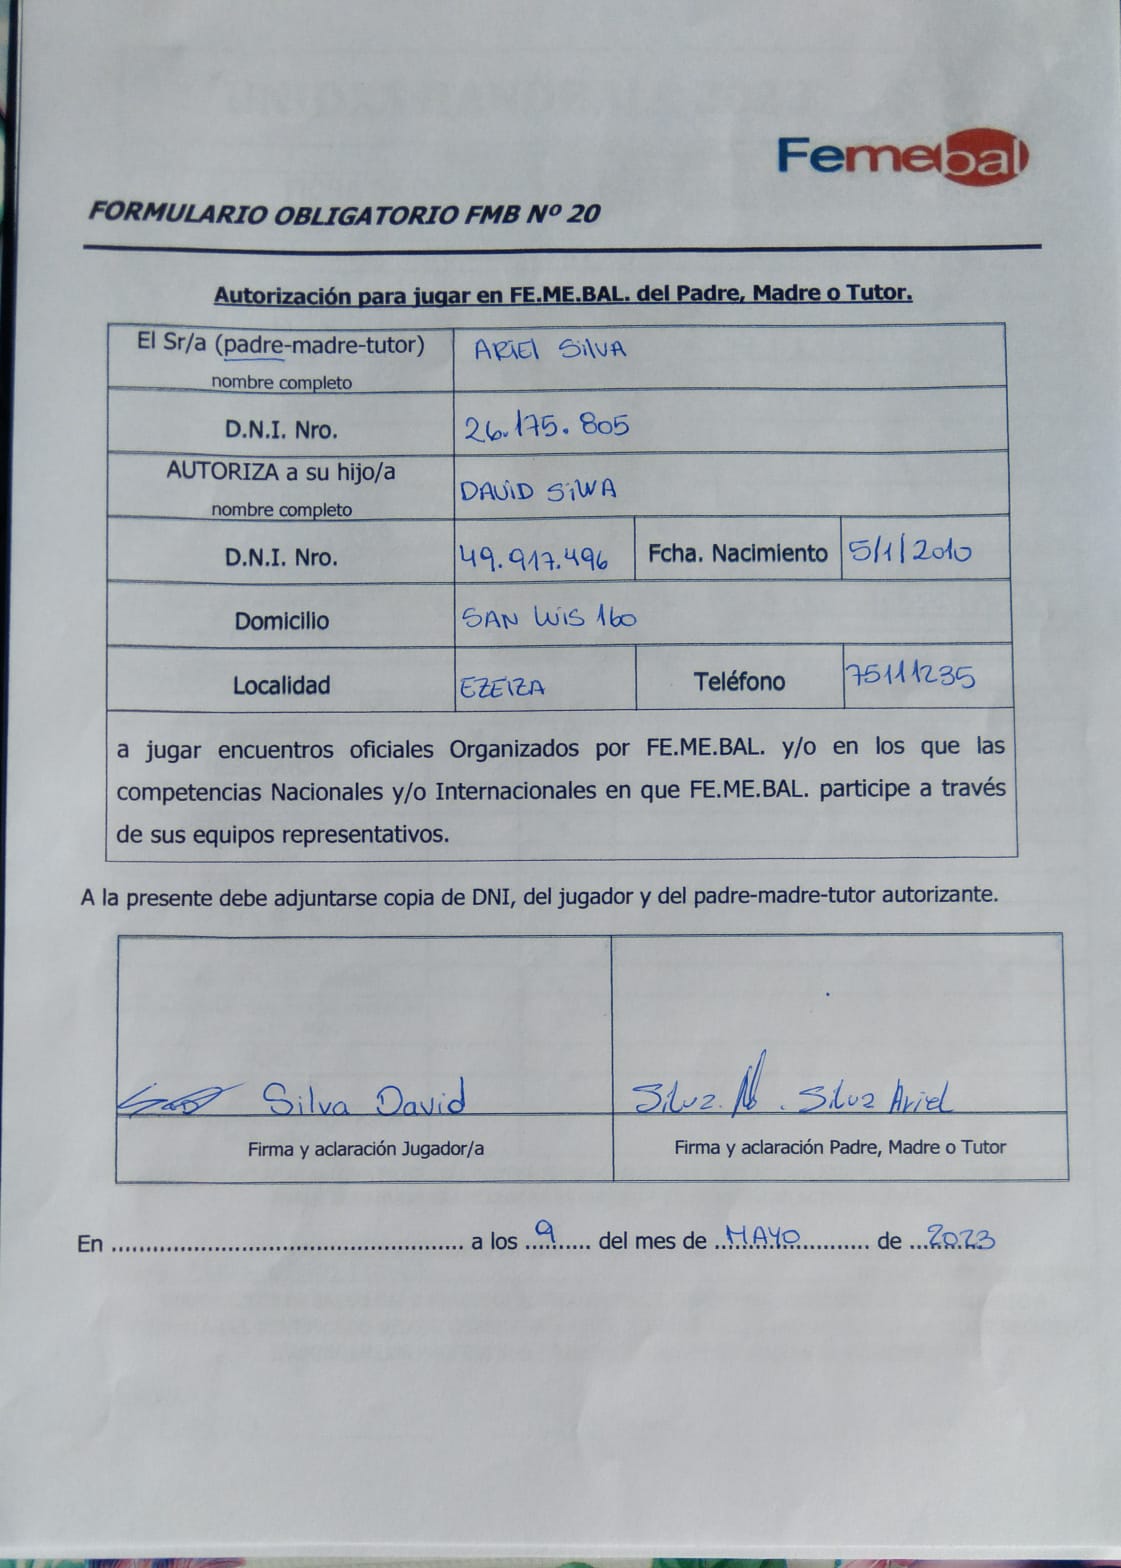 Femebal
FORMULARIO OBLIGATORIO FMB Nº 20
Autorización para jugar en FE.ME.BAL. del Padre, Madre o Tutor.
El Sr/a (padre-madre-tutor) ARIEL SILVA
nombre completo
D.N.I. Nro. 26.175.805
AUTORIZA a su hijo/a DAVID SILVA
nombre completo
D.N.I. Nro. 49.917.496 Fcha. Nacimiento 5/1/2010
Domicilio SAN LUIS 160
Localidad EZEIZA Teléfono 75111235
a jugar encuentros oficiales Organizados por FE.ME.BAL. y/o en los que las
competencias Nacionales y/o Internacionales en que FE.ME.BAL. participe a través
de sus equipos representativos.
A la presente debe adjuntarse copia de DNI, del jugador y del padre-madre-tutor autorizante.
Silva David Silva. Silva Ariel
Firma y aclaración Jugador/a Firma y aclaración Padre, Madre o Tutor
En .................................................. a los 9 del mes de MAYO de 2023